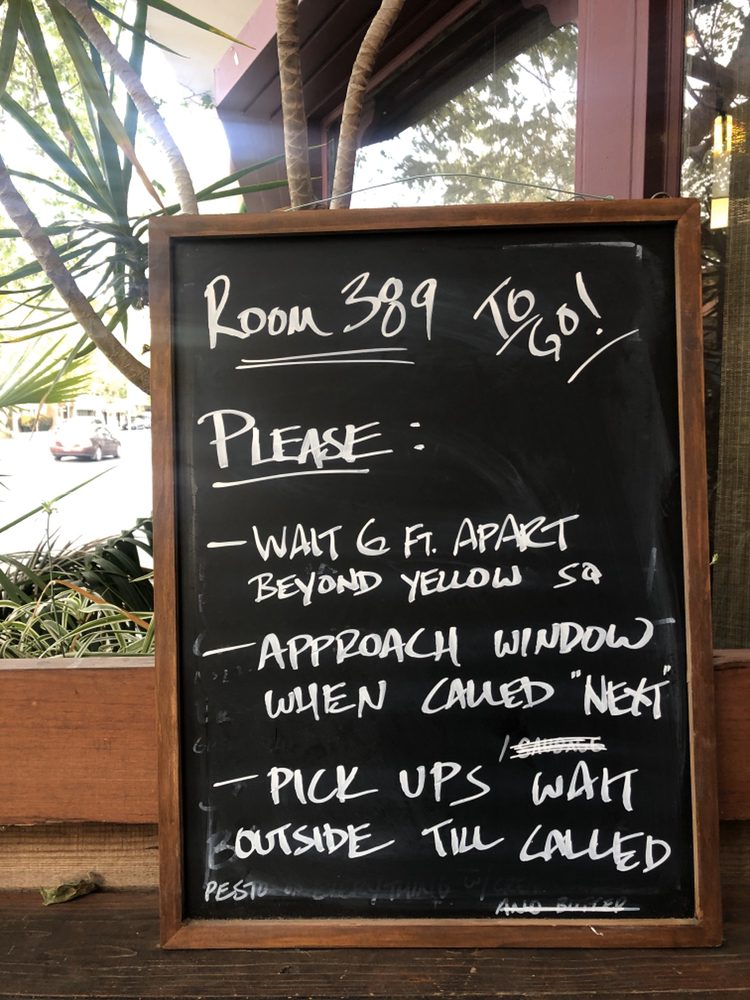 ROOM 389 TO GO!
PLEASE:
- WAIT 6 FT. APART
BEYOND YELLOW SQ
- APPROACH WINDOW
WHEN CALLED "NEXT"
- PICK UPS WAIT
OUTSIDE TILL CALLED
PESTO EVERYTHING
AND BUTTER